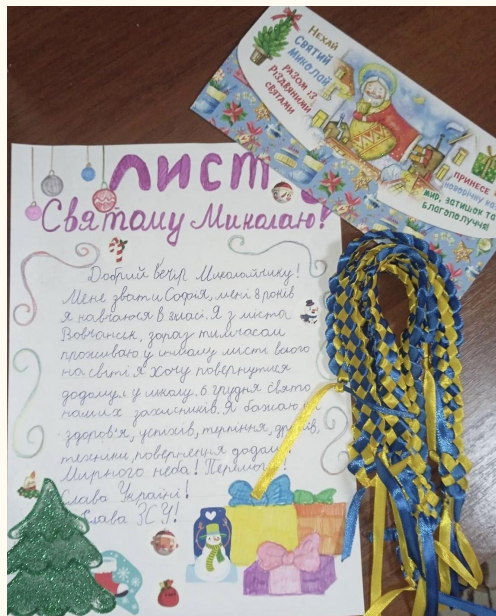 Нехай
Святий
Миколай
разом із
Різдвяними
святами
принесе
новорічну
мир, затишок та
благополуччя!
Лист
Святому Миколаю!
Добрий вечір Миколайчику!
Мене звати Софія, мені 8 років
я навчаюся в 3 класі. Я з міста
Вовчанськ, зараз тимчасом
проживаю у іншому місті
на світі я хочу повернутися
додому і у школу. 6 грудня свято
наших захисників. Я бажаю
здоров'я, успіхів, терпіння, дронів,
техніки, повернення додому.
Мирного неба! Перемоги!
Слава Україні!
Слава ЗСУ!